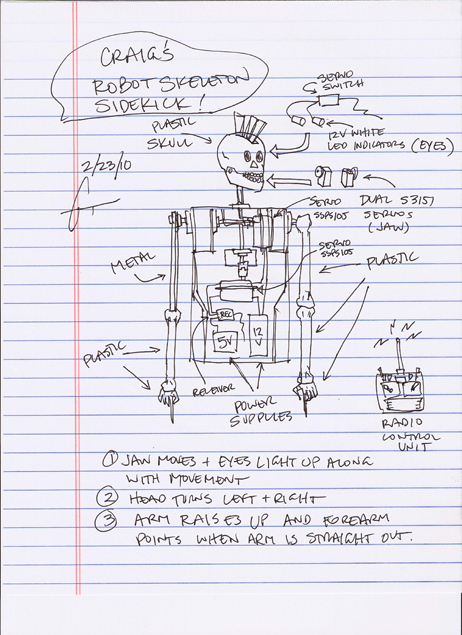 CRAIG'S
ROBOT SKELETON
SIDEKICK!
SERVO
SWITCH
PLASTIC
SKULL
12V WHITE
LED INDICATORS (EYES)
2/23/10
SERVO
SSPS105
DUAL S3157
SERVOS
(JAW)
SERVO
SSPS105
METAL
PLASTIC
REC
5V
12V
PLASTIC
RECEIVER
POWER
SUPPLIES
RADIO
CONTROL
UNIT
① JAW MOVES + EYES LIGHT UP ALONG
WITH MOVEMENT
② HEAD TURNS LEFT + RIGHT
③ ARM RAISES UP AND FOREARM
POINTS WHEN ARM IS STRAIGHT OUT.